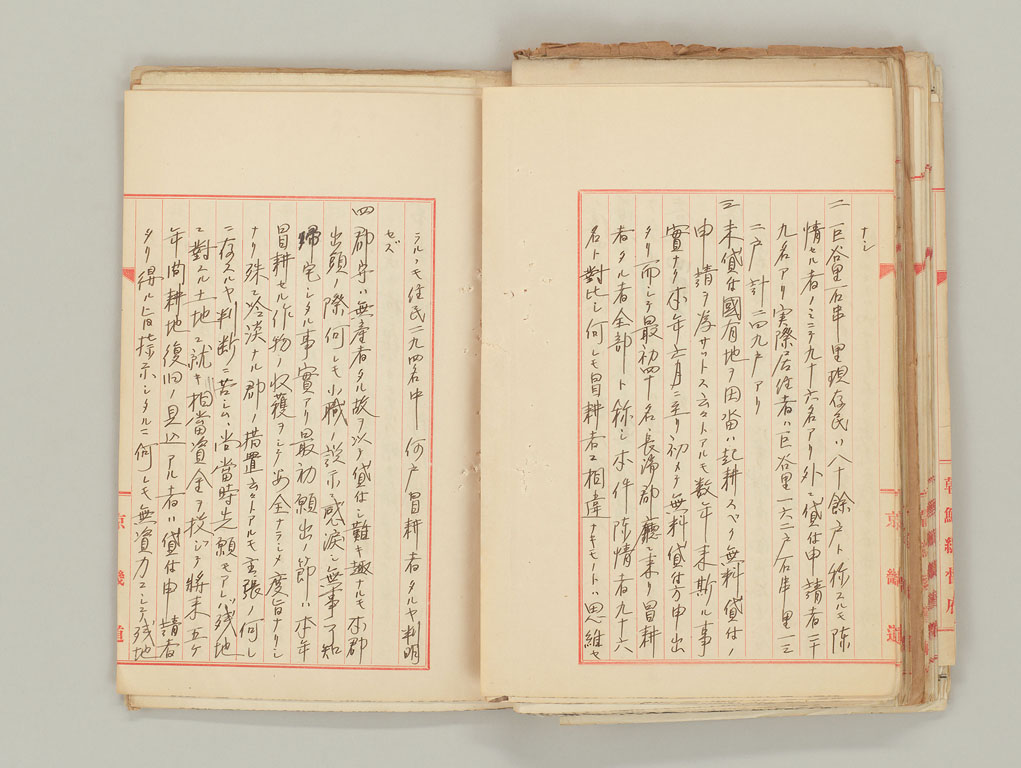 ナシ
二 巨谷里石串里現存民ハ八十餘戸ト称スルモ陳
情セル者ノミニテ九十六名アリ外ニ貸付申請者三十
九名アリ実際居住者ハ巨谷里一六二戸石串里一三
二戸計二四九戸アリ
三 未貸付國有地ヲ田畓ハ起耕スベク無料貸付ノ
申請ヲ為サットス云々トアルモ数年来斯ル事
實ナク本年六月ニ至リ初メテ無料貸付方申出
タリ而シテ最初四十名、長湍郡廳ニ来リ冒耕
者タル者全部ト称シ本件陳情者九十六
名ト對比シ何レモ冒耕者ニ相違ナキモノトハ思維セ
ラルヽモ住民二九四名中何戸冒耕者タルヤ判明
セズ
四 郡守ハ無産者タル故ヲ以テ貸付シ難キ趣ナルモ本郡
出頭ノ際何レモ小職ノ説示ニ感涙シ無事了知
帰宅シタル事實アリ最初願出ノ節ハ本年
冒耕セル作物ノ収穫ヲシテ安全ナラシメ度旨ナリシ
ナリ殊ニ冷淡ナル郡ノ措置云々トアルモ主張ノ何レ
ニ存スルヤ判断ニ苦シム、尚當時先願モアレバ残地
ニ對スル土地ニ就キ相當資金ヲ投ジテ將来五ヶ
年間耕地復旧ノ見込アル者ハ貸付申請者
タリ得ル旨指示シタルニ何レモ無資力ニシテ残地
朝鮮總督府
京畿道
京畿道